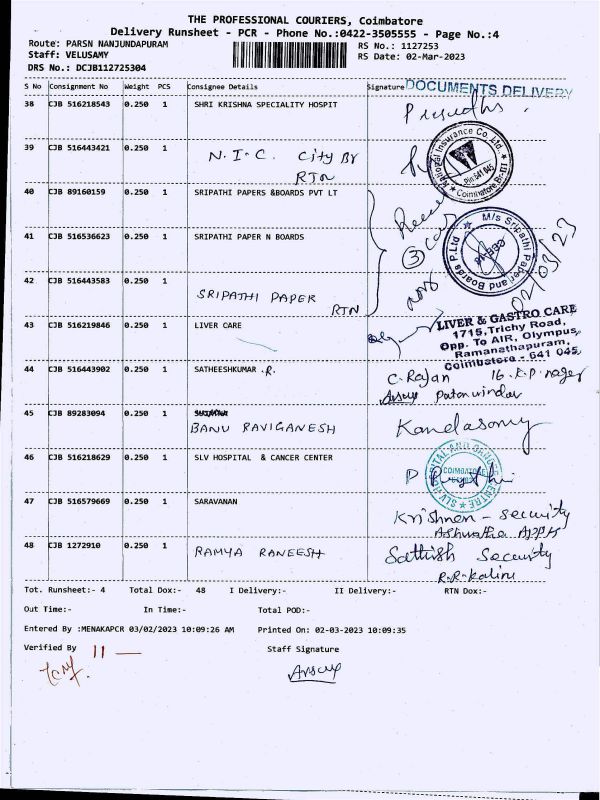 THE PROFESSIONAL COURIERS, Coimbatore
Delivery Runsheet - PCR - Phone No.:0422-3505555 - Page No.:4
Route: PARSN NANJUNDAPURAM RS No.: 1127253
Staff: VELUSAMY RS Date: 02-Mar-2023
DRS No.: DCJB112725304
S No Consignment No Weight PCS Consignee Details Signature DOCUMENTS DELIVERY
38 CJB 516218543 0.250 1 SHRI KRISHNA SPECIALITY HOSPIT
39 CJB 516443421 0.250 1 N.I.C. City Br
RTN
National Insurance Co. Ltd.
Pin-641 045
Coimbatore Br-III
40 CJB 89160159 0.250 1 SRIPATHI PAPERS &BOARDS PVT LT
41 CJB 516536623 0.250 1 SRIPATHI PAPER N BOARDS
3
M/s Sripathi Paper and Boards P.Ltd
02/03/23
42 CJB 516443583 0.250 1 SRIPATHI PAPER
RTN
43 CJB 516219846 1 0.250 LIVER CARE
LIVER & GASTRO CARE
1715, Trichy Road,
Opp. To AIR, Olympus,
Ramanathapuram,
Coimbatore - 641 045.
44 CJB 516443902 0.250 1 SATHEESHKUMAR .R. C. Rajan 16. K.P. nager
45 CJB 89283094 0.250 1
BANU RAVIGANESH Kandasamy
46 CJB 516218629 0.250 1 SLV HOSPITAL & CANCER CENTER
SLV HOSPITAL AND CANCER CENTRE
COIMBATORE
47 CJB 516579669 0.250 1 SARAVANAN Krishnen - security
48 CJB 1272910 0.250 1 RAMYA RANEESH Sattish Security
Tot. Runsheet:- 4 Total Dox:- 48 I Delivery:- II Delivery:- RTN Dox:-
Out Time:- In Time:- Total POD:-
Entered By :MENAKAPCR 03/02/2023 10:09:26 AM Printed On: 02-03-2023 10:09:35
Verified By Staff Signature